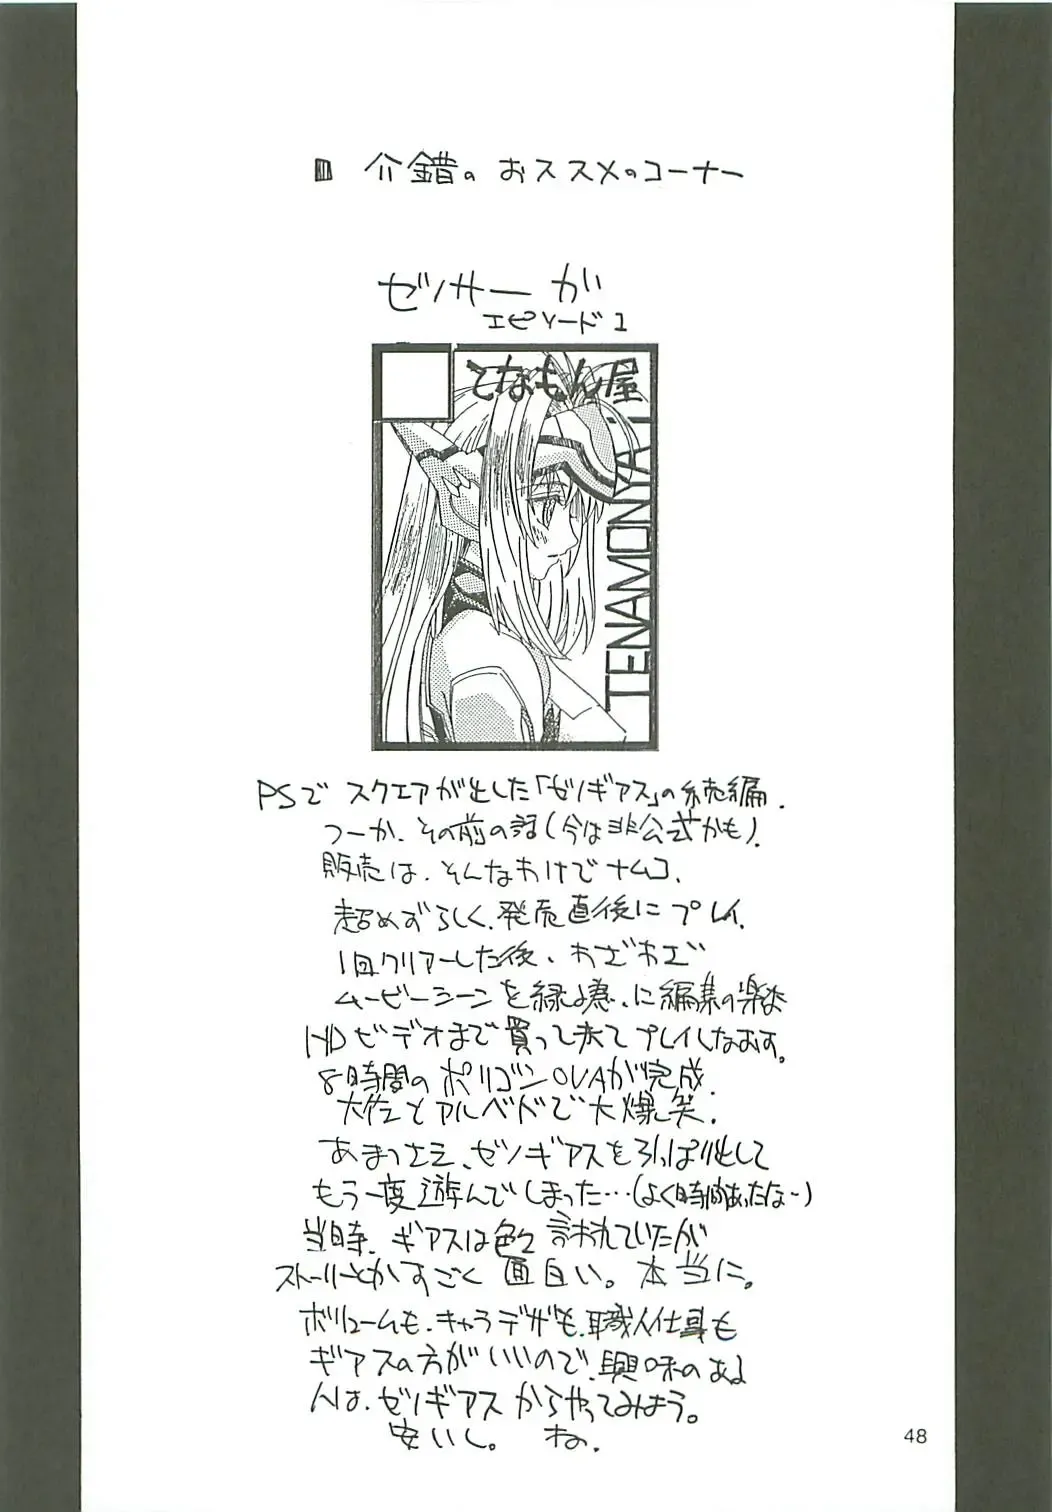 介錯の おススメのコーナー
ゼノサーガ
エピソード1
てなもん屋
TENAMONYA
PSで スクエアが出した「ゼノギアス」の続編.
つーか、その前の話(今は非公式かも).
販売は、そんなわけでナムコ.
超めずらしく、発売直後にプレイ.
1回クリアーした後、わざわざ
ムービーシーンを録る為、に編集の楽な
HDビデオまで買って来てプレイしなおす。
8時間のポリゴンOVAが完成.
大佐とアルベドで大爆笑.
あまつさえ、ゼノギアスを引っぱり出して
もう一度遊んでしまった…(よく時間あったな~)
当時、ギアスは色々言われていたが
ストーリーとかすごく面白い。本当に。
ボリュームも、キャラデザも、職人仕事も
ギアスの方がいいので、興味のある
人は、ゼノギアスからやってみよう。
安いし。 ね.
48